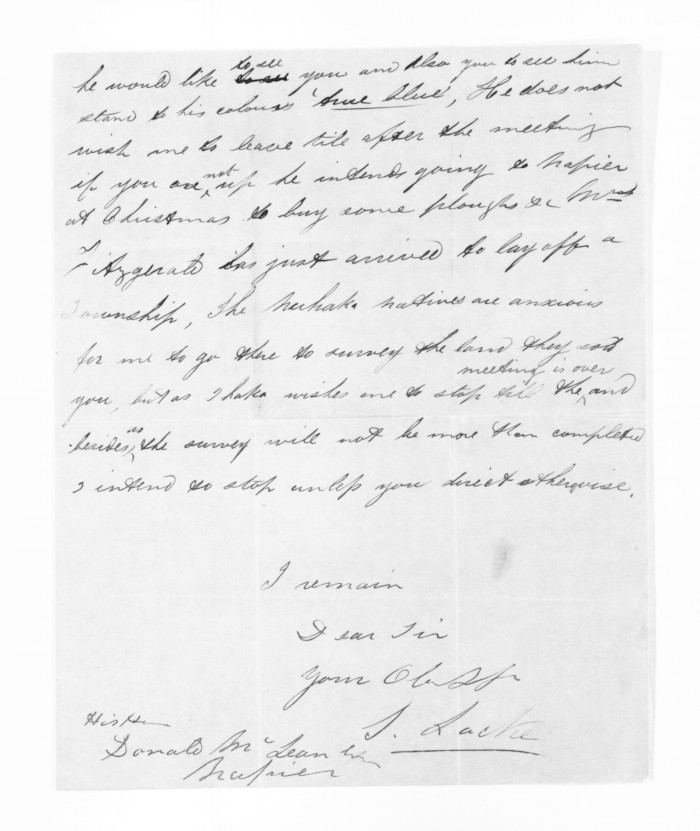 he would like to see you and also you to see him
stand to his colours 'true blue', He does not
wish me to leave till after the meeting
if you are not up he intends going to Napier
at Christmas to buy some ploughs &c
Fitzgerald has just arrived to lay off a
Township, The Nuhaka natives are anxious
for me to go there to survey the land they sold
you, but as Ihaka wishes me to stop till the meeting is over and
besides as the survey will not be more than completed
I intend to stop unless you direct otherwise.
I remain
Dear Sir
Your Obt Ser
S. Locke
Donald McLean Esq
Napier